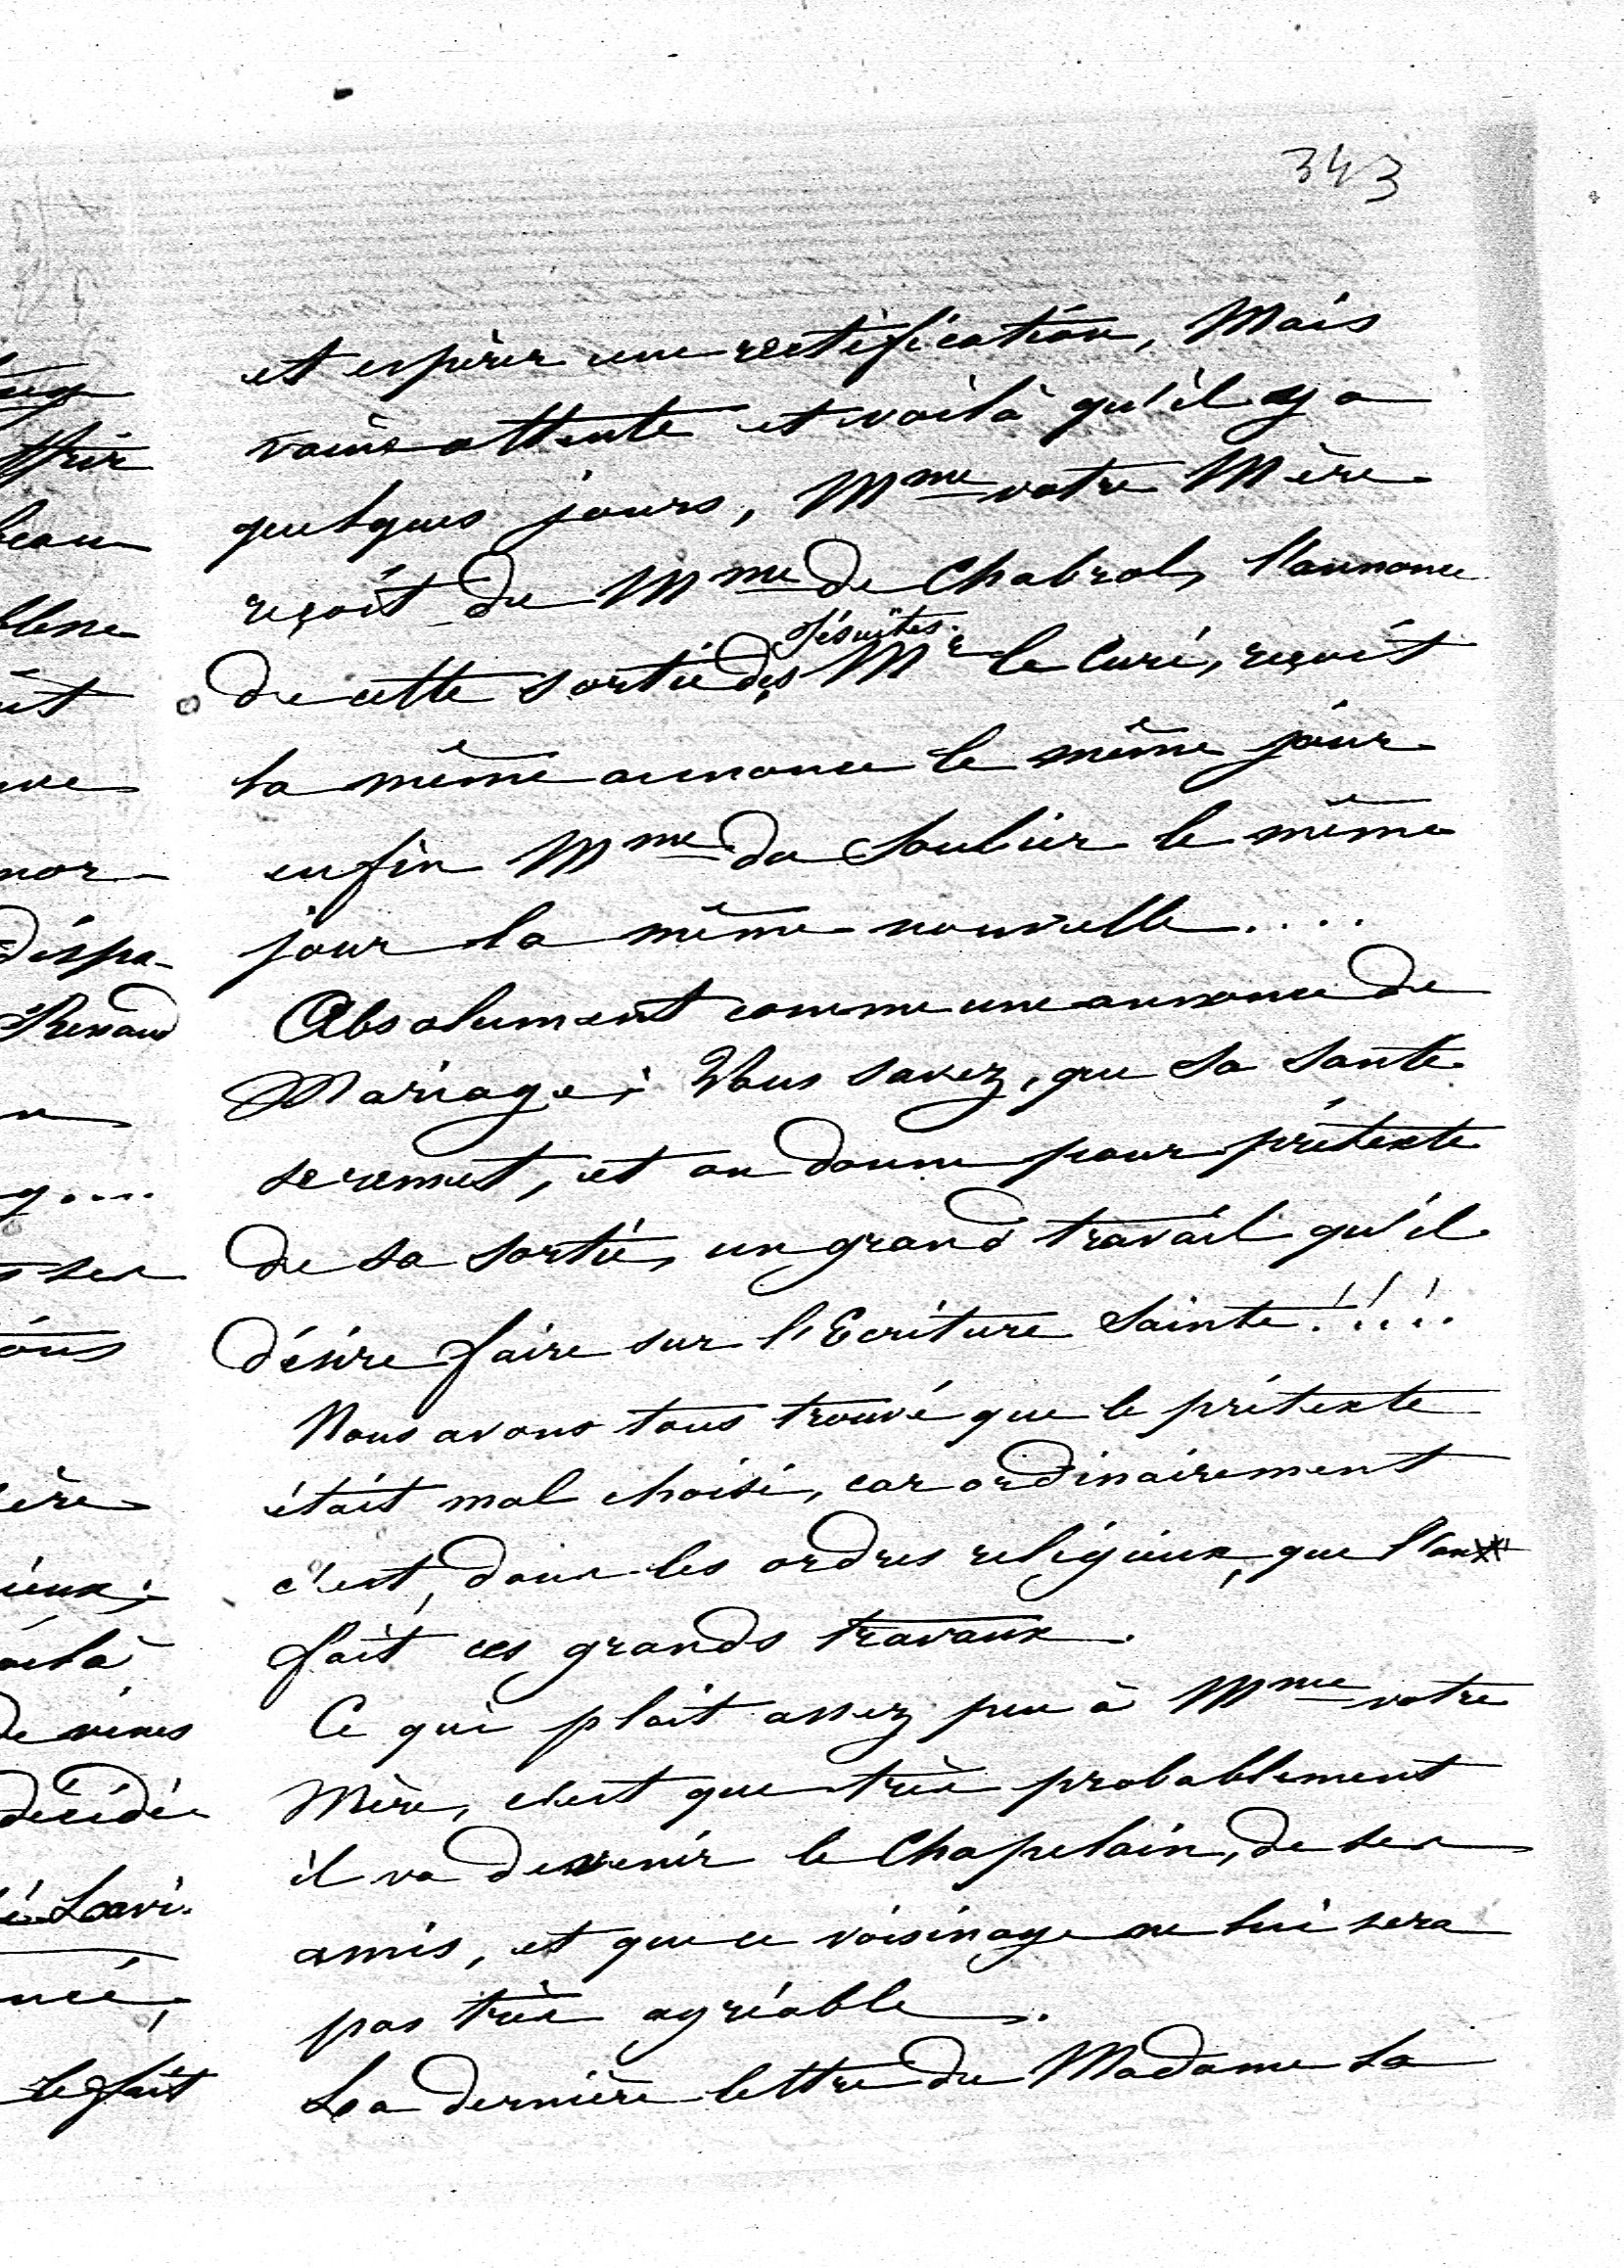 343
et espérer une rectification, Mais
vaine attente et voilà qu'il y a
quelques jours, Mme votre Mère
reçoit de Mme de Chabrol, l'annonce
de cette sortie des Jésuites. Mr le Curé, reçoit
la même annonce le même jour
enfin Mme du Soulier le même
jour la même nouvelle....
Absolument comme une annonce de
Mariage; Vous savez, que sa santé
se remet, et on donne pour prétexte
de sa sortie, un grand travail qu'il
désire faire sur l'Ecriture Sainte!!!!
Nous avons tous trouvé que le prétexte
était mal choisi, car ordinairement
c'est, dans les ordres religieux, que l'on
fait ces grands travaux.
Ce qui plait assez peu à Mme votre
Mère, c'est que très probablement
il va devenir le Chapelain, de ses
amis, et que ce voisinage ne lui sera
pas très agréable.
La dernière lettre de Madame La